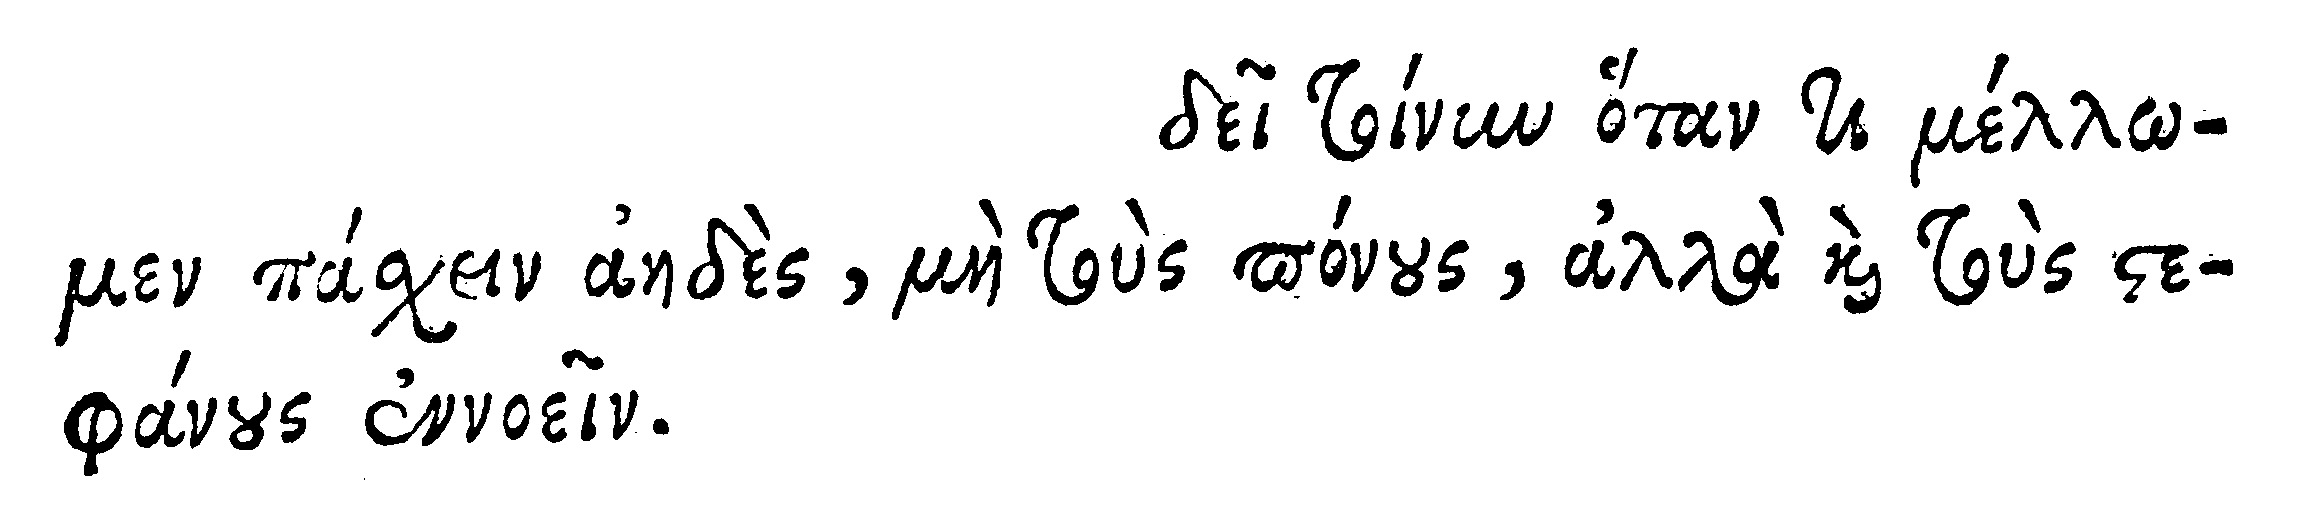 δεῖ τοίνυν ὅταν τι μέλλω-
μεν πάσχειν ἀηδὲς, μὴ τοὺς πόνους, ἀλλὰ καὶ τοὺς στε-
φάνους ἐννοεῖν.